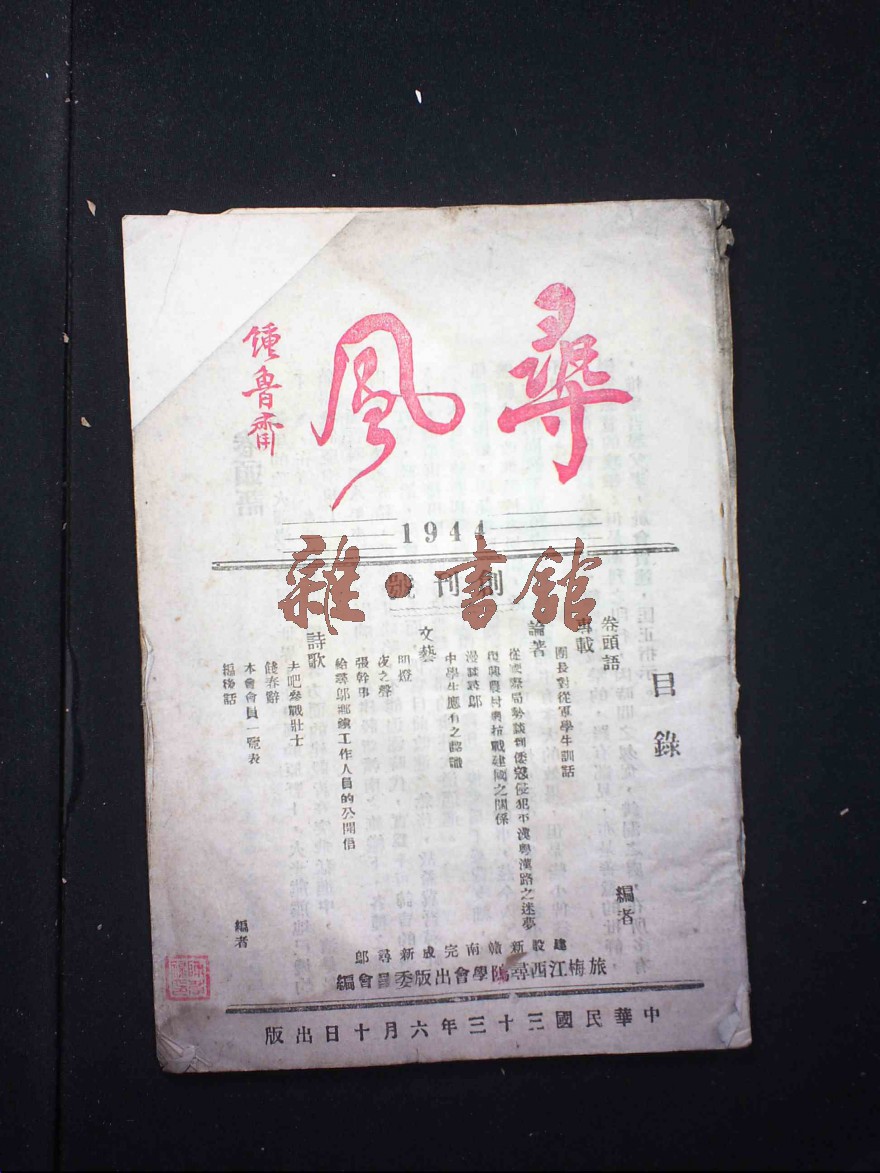 尋風
鍾魯齋
1944
創刊號
雜·書館
目錄
卷頭語 編者
專載
團長對從軍學生訓話
論著
從國際局勢談到倭寇侵犯平漢粵漢路之迷夢
復興農村與抗戰建國之關係
漫談尋鄔
中學生應有之認識
文藝
明燈
夜之聲
張幹事
給尋鄔鄉鎮工作人員的公開信
詩歌
去吧參戰壯士
餞春辭
本會會員一覽表
編後話 編者
建設新贛南完成新尋鄔
旅梅江西尋鄔學會出版委員會編
中華民國三十三年六月十日出版